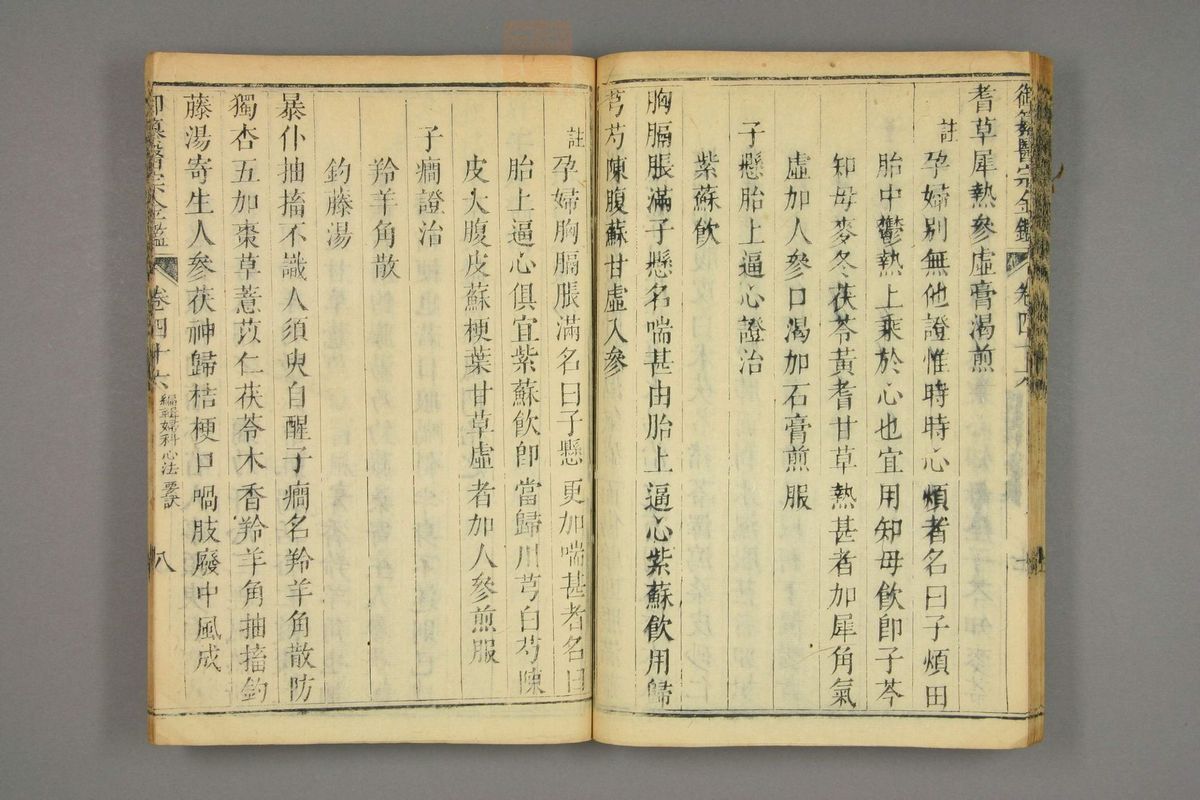 御纂醫宗金鑑 卷四十六
耆草犀熱參虛膏渴煎
註孕婦別無他證惟時時心煩者名曰子煩由
胎中鬱熱上乘於心也宜用知母飲卽子芩
知母麥冬茯苓黃耆甘草熱甚者加犀角氣
虛加人參口渴加石膏煎服
子懸胎上逼心證治
紫蘇飲
胸膈脹滿子懸名喘甚由胎上逼心紫蘇飲用歸
芎芍陳腹蘇甘虛入參
註孕婦胸膈脹滿名曰子懸更加喘甚者名曰
胎上逼心俱宜紫蘇飲卽當歸川芎白芍陳
皮大腹皮蘇梗葉甘草虛者加人參煎服
子癎證治
羚羊角散
鈞藤湯
暴仆抽搐不識人須臾自醒子癎名羚羊角散防
獨杏五加棗草薏苡仁茯苓木香羚羊角抽搐鈞
藤湯寄生人參茯神歸桔梗口喎肢廢中風成
御纂醫宗金鑑 卷四十六 編輯婦科心法要訣 八